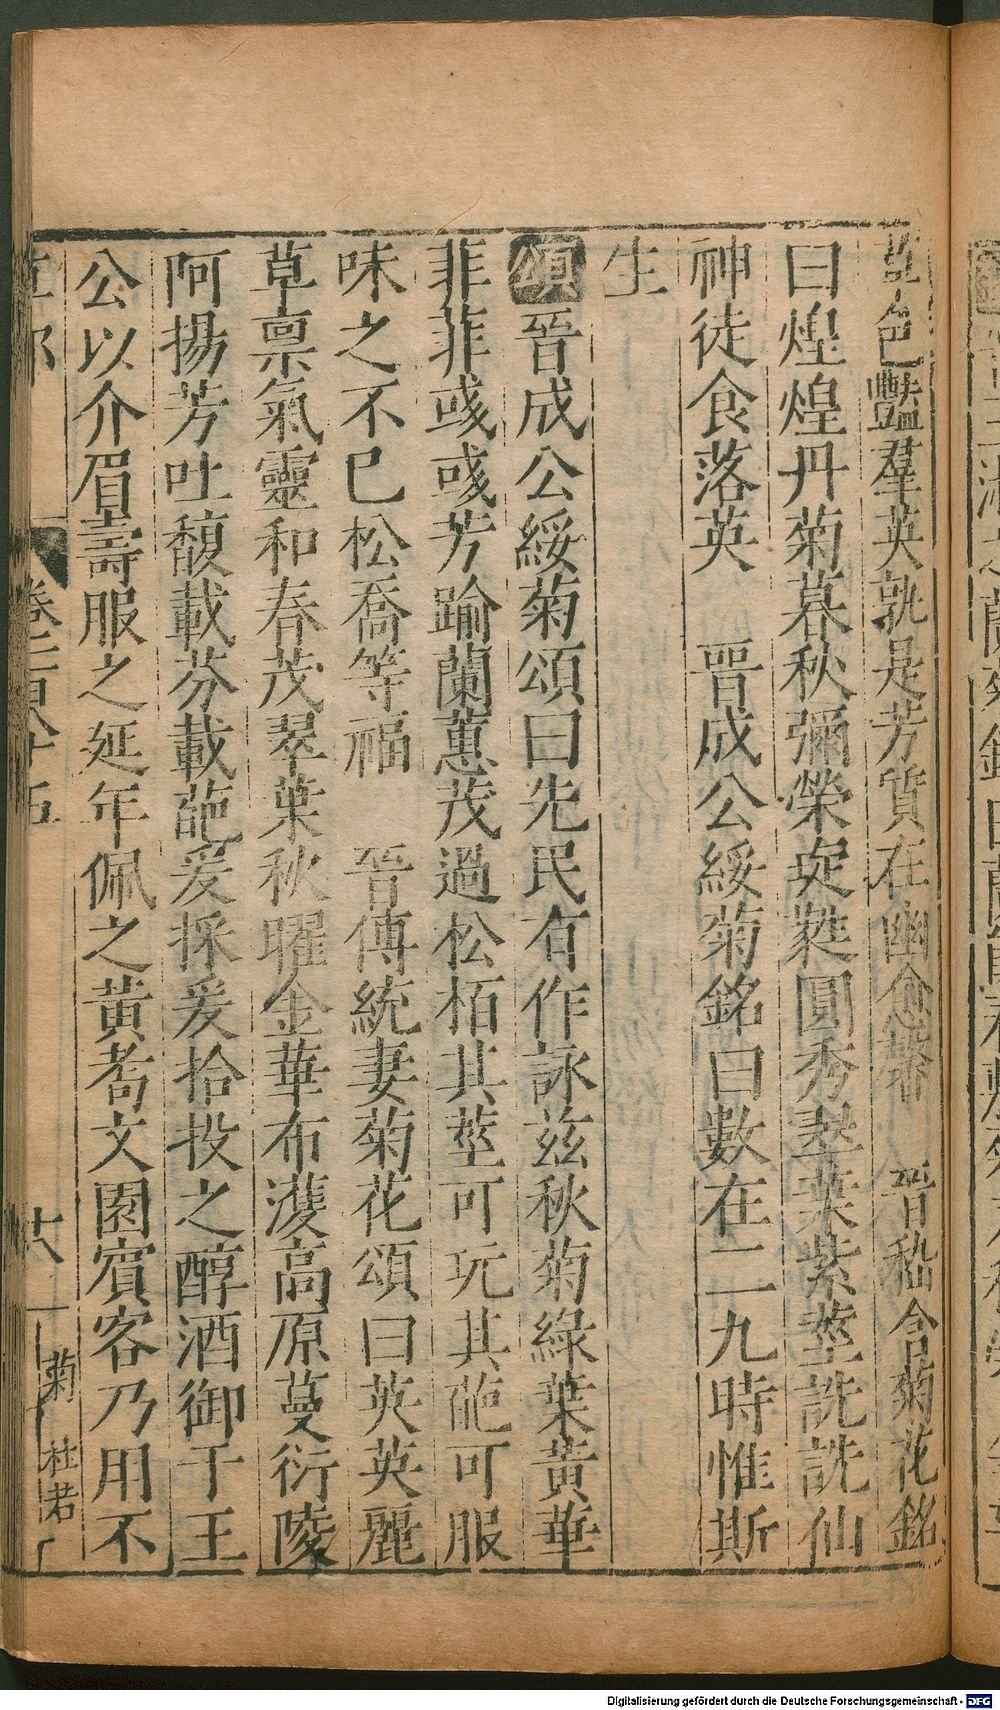 色豔羣英孰是芳質在幽愈馨　晉嵇含菊花銘
曰煌煌丹菊暮秋彌榮㫌蕤圓秀翠葉紫莖詵詵仙
神徒食落英　晉成公綏菊銘曰數在二九時惟斯
生
頌晉成公綏菊頌曰先民有作詠茲秋菊綠葉黃華
菲菲彧彧芳踰蘭蕙茂過松栢其莖可玩其葩可服
味之不已松喬等福　晉傅統妻菊花頌曰英英麗
草稟氣靈和春茂翠葉秋曜金華布濩高原蔓衍陵
阿揚芳吐馥載芬載葩爰採爰拾投之醇酒御于王
公以介眉壽服之延年佩之黃耇文園賓客乃用不
草部　卷三百八十五　十八　菊　杜若
Digitalisierung gefördert durch die Deutsche Forschungsgemeinschaft - DFG